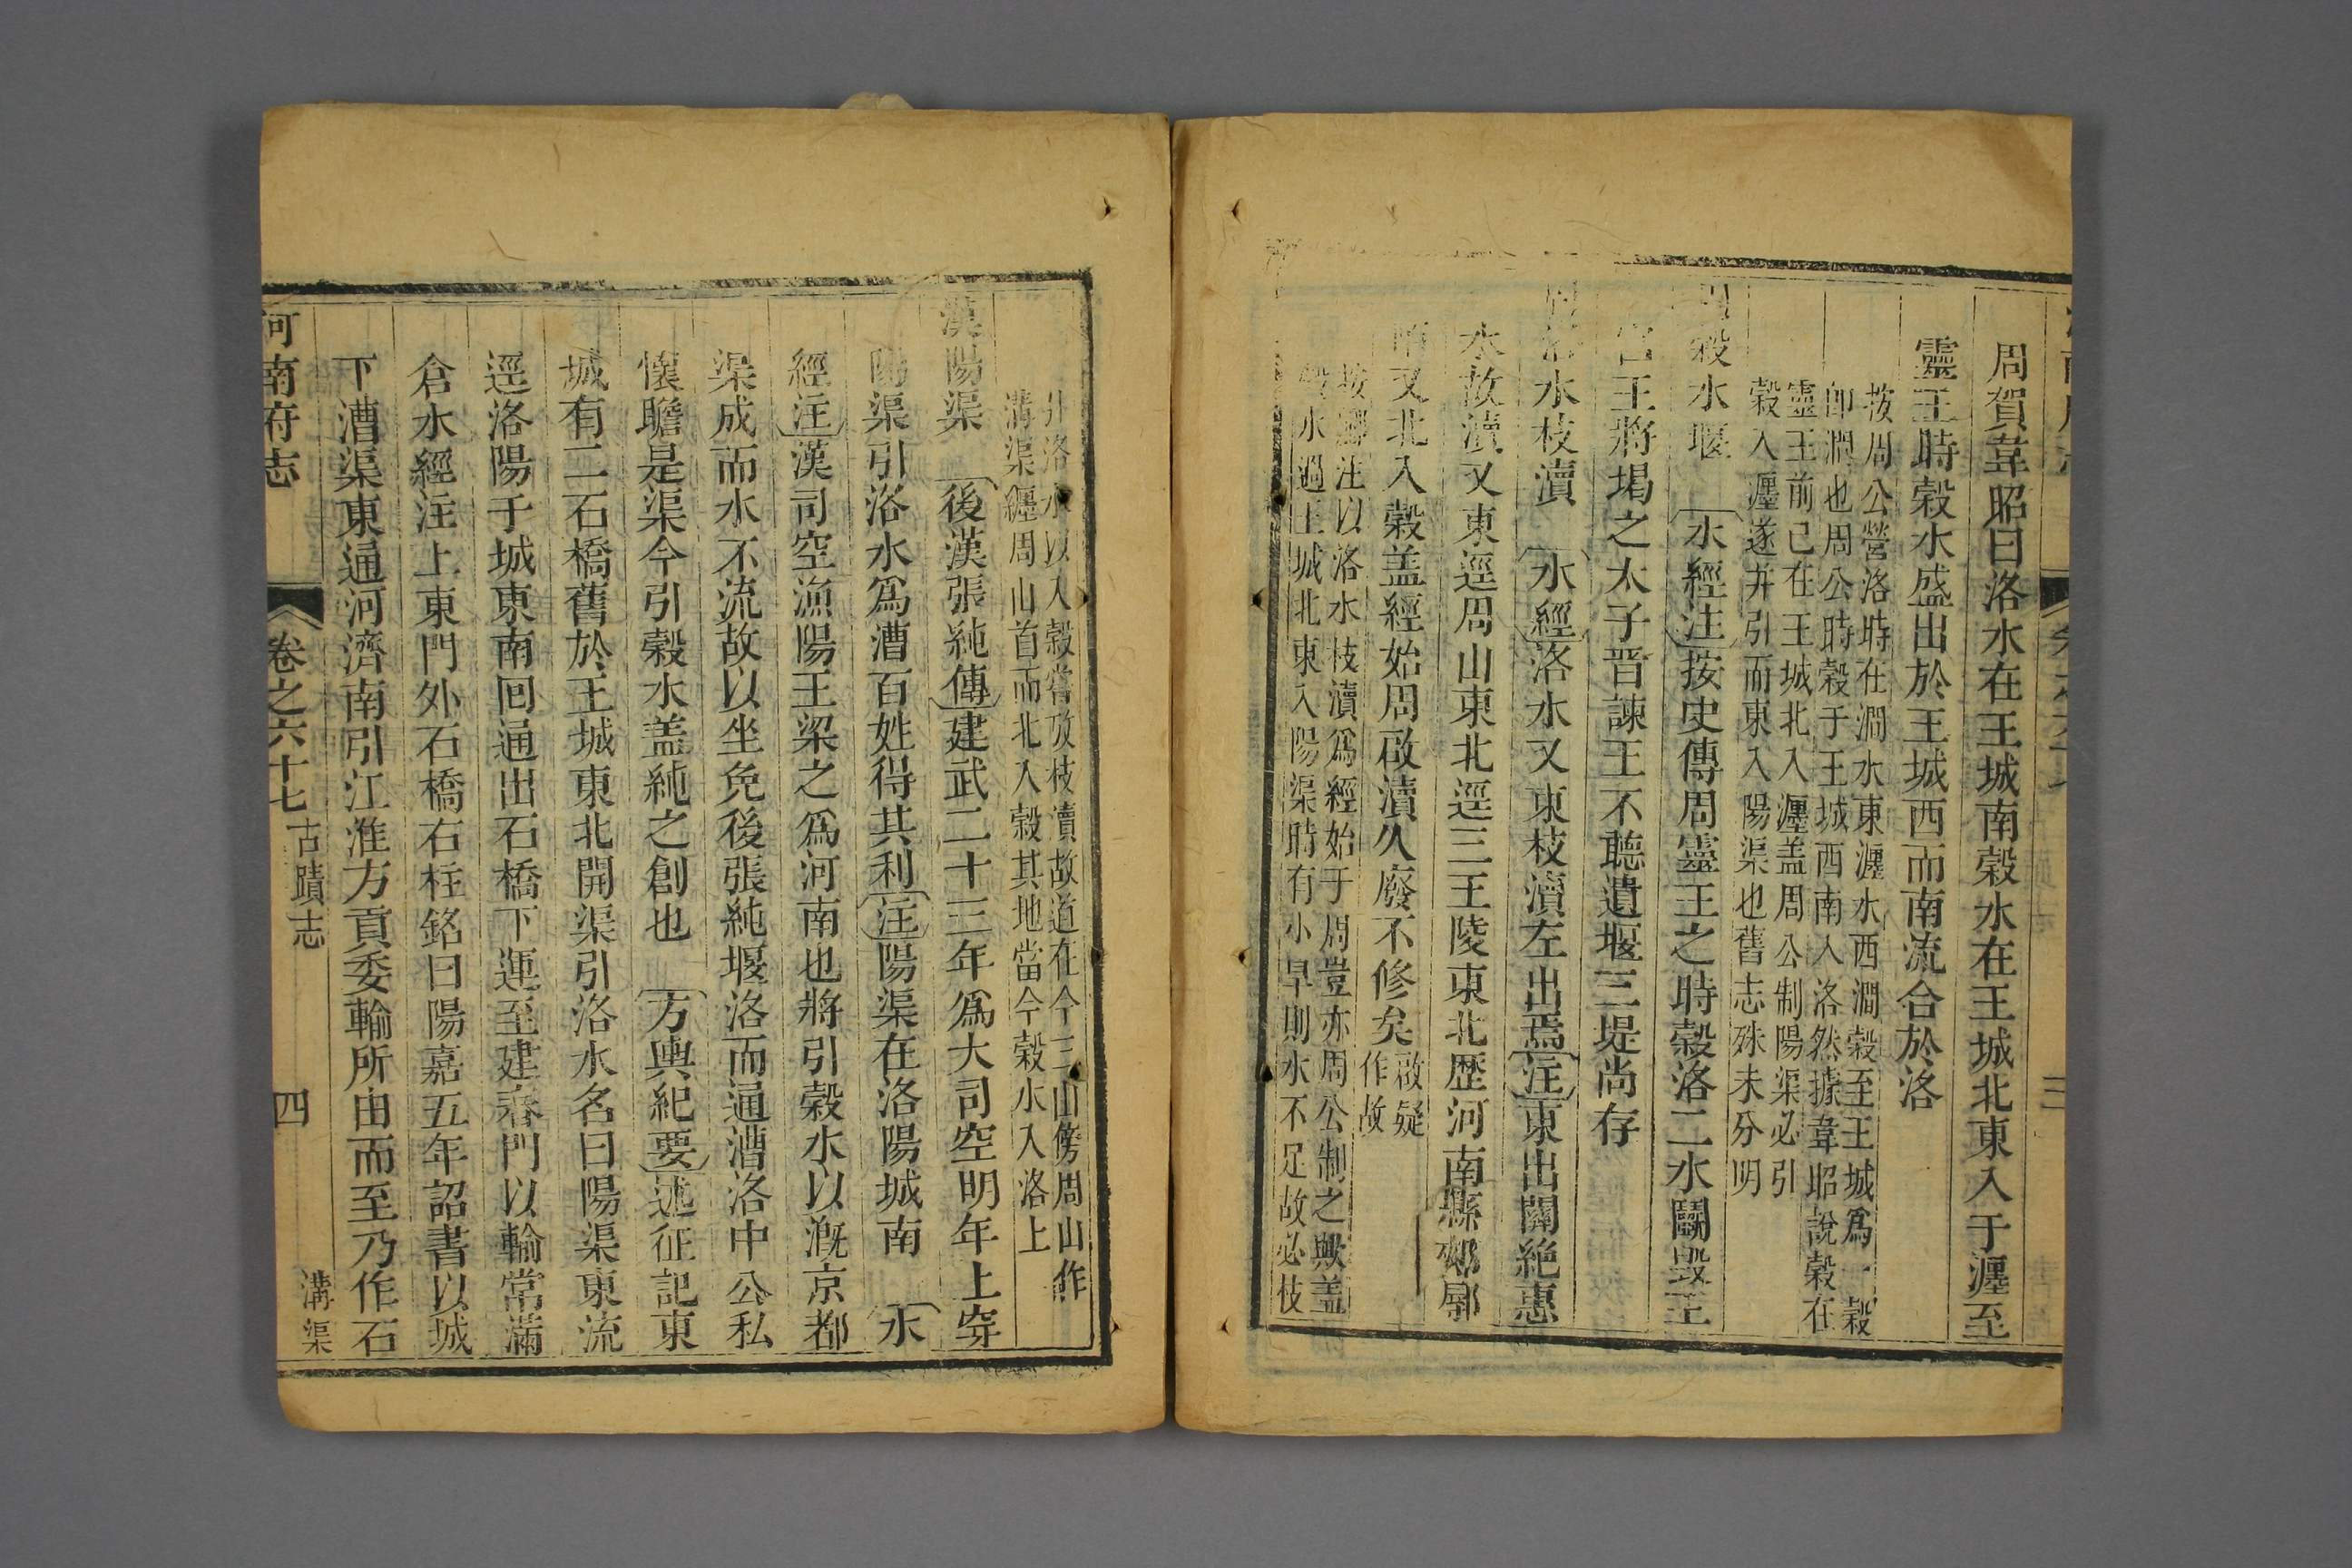 周賀韋昭曰洛水在王城南榖水在王城北東入于瀍至
靈王時榖水盛出於王城西而南流合於洛
按周公營洛時在澗水東瀍水西澗榖至王城爲一榖
卽澗也周公時榖于王城西南入洛然據韋昭說榖在
靈王前已在王城北入瀍盖周公制陽渠必引
榖入瀍遂并引而東入陽渠也舊志殊未分明
周榖水堰 水經注按史傳周靈王之時榖洛二水鬬毀王
宮王將堨之太子晉諫王不聽遺堰三堤尚存
周洛水枝瀆 水經洛水又東枝瀆左出焉注東出關絶惠
水故瀆又東逕周山東北逕三王陵東北歴河南縣郟鄏
陌又北入榖盖經始周啟瀆久廢不修矣
啟疑
作故
按酈注以洛水枝瀆爲經始于周豈亦周公制之歟盖
榖水過王城北東入陽渠時有小旱則水不足故必枝
引洛水以入榖嘗攷枝瀆故道在今三山傍周山作
溝渠纒周山首而北入榖其地當今榖水入洛上
漢陽渠 後漢張純傳建武二十三年爲大司空明年上穿
陽渠引洛水爲漕百姓得其利注陽渠在洛陽城南 水
經注漢司空漁陽王梁之爲河南也將引榖水以溉京都
渠成而水不流故以坐免後張純堰洛而通漕洛中公私
懷贍是渠今引榖水盖純之創也 方輿紀要述征記東
城有二石橋舊於王城東北開渠引洛水名曰陽渠東流
逕洛陽于城東南回通出石橋下運至建春門以輸常滿
倉水經注上東門外石橋右柱銘曰陽嘉五年詔書以城
下漕渠東通河濟南引江淮方貢委輸所由而至乃作石
河南府志 卷之六十七 古蹟志 四 溝渠